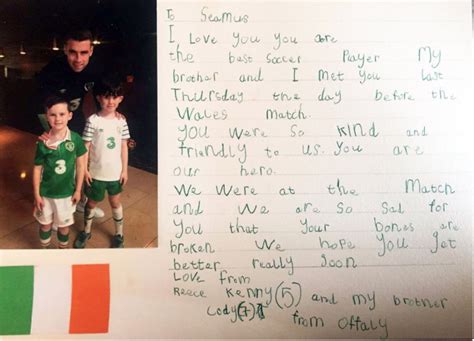 To Seamus
I Love You you are
the best soccer Player My
brother and I Met You Last
Thursday the day before the
Wales Match.
You were so kind and
friendly to us. You are
our hero.
We were at the Match
and we are so Sad for
You that Your bones are
broken We hope you get
better really soon
Love from
Reece Kenny (5) and my brother
Cody (7)
from Offaly
3
3